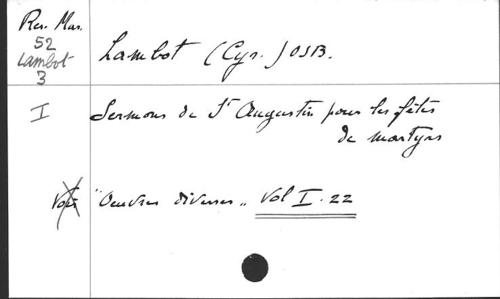 Res. Mus.
52
Lambot
3
Lambot (Cyr.) OSB.
I
Sermons de St Augustin pour les fêtes
de martyrs
Voir "Oeuvres diverses" Vol I. 22